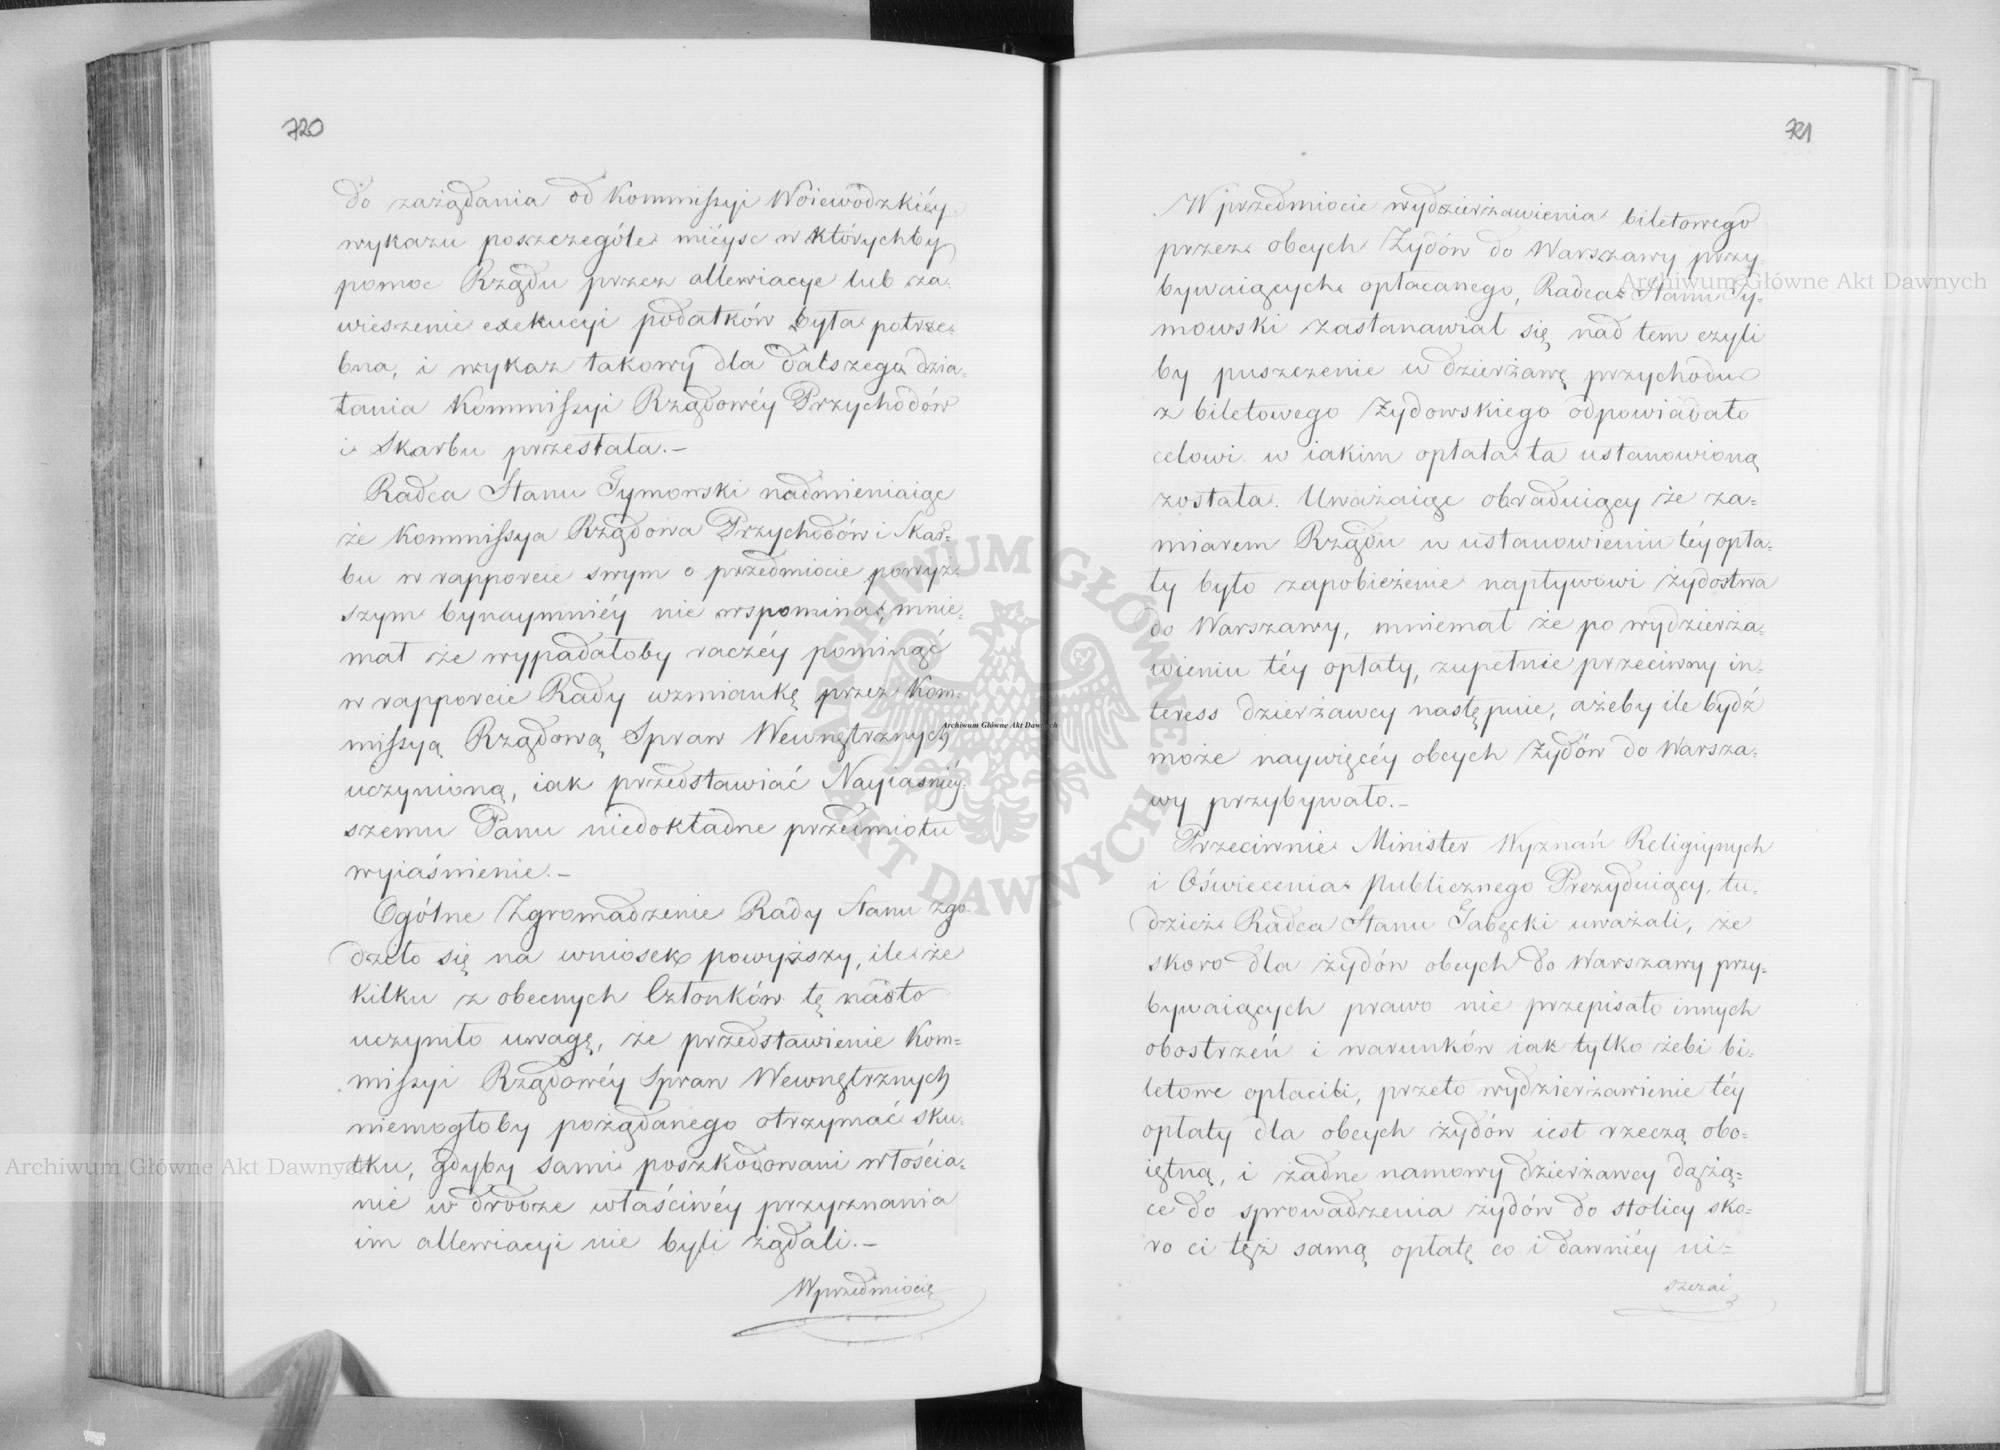 720
do zażądania od Kommissyi Woiewodzkiéy
wykazu poszczególe miéysc w którychby
pomoc Rządu przez allewiacye lub za=
wieszenie exekucyi podatków była potrze=
bna, i wykaz takowy dla dalszego dzia=
łania Kommissyi Rządowéy Przychodów
i Skarbu przesłała.–
Radca Stanu Tymowski nadmieniaiąc
że Kommissya Rządowa Przychodów i Skar=
bu w rapporcie swym o przedmiocie powyż=
szym bynaymniéy nie wspomina, mnie=
mał że wypadałoby raczéy pominąć
w rapporcie Rady wzmiankę przez Kom=
missyą Rządową Spraw Wewnętrznych
uczynioną, iak przedstawiać Nayiaśniéy=
szemu Panu niedokładne przedmiotu
wyiaśnienie.–
Ogólne Zgromadzenie Rady Stanu zgo=
dziło się na wniosek powyższy, ile że
kilku z obecnych Członków tę nadto
uczyniło uwagę, że przedstawienie Kom=
missyi Rządowéy Spraw Wewnętrznych
niemogłoby pożądanego otrzymać sku=
tku, gdyby sami poszkodowani włościa=
nie w drodze właściwéy przyznania
im allewiacyi nie byli żądali.–
W przedmiocie
721
W przedmiocie wydzierżawienia biletowego
przez obcych Żydów do Warszawy przy=
bywaiących opłacanego, Radca Stanu Ty=
mowski zastanawiał się nad tem czyli
by puszczenie w dzierżawę przychodu
z biletowego Żydowskiego odpowiadało
celowi w iakim opłata ta ustanowioną
została. Uważaiąc obraduiący że za=
miarem Rządu w ustanowieniu téy opła=
ty było zapobieżenie napływowi żydostwa
do Warszawy, mniemał że po wydzierża=
wieniu téy opłaty, zupełnie przeciwny in=
teress dzierżawcy nastąpnie, ażeby ile bydź
może naywięcéy obcych Żydów do Warsza=
wy przybywało.–
Przeciwnie Minister Wyznań Religiynych
i Oświecenia Publicznego Prezyduiący, tu=
dzież Radca Stanu Gabęcki uważali, że
skoro dla żydów obcych do Warszawy przy=
bywaiących prawo nie przepisało innych
obostrzeń i warunków iak tylko żebi bi=
letowe opłacili, przeto wydzierżawienie téy
opłaty dla obcych żydów iest rzeczą obo=
iętną, i żadne namowy dzierżawcy dążą=
ce do sprowadzenia żydów do stolicy sko=
ro ci też samą opłatę co i dawniéy ui=
szczai
Archiwum Główne Akt Dawnych
Archiwum Główne Akt Dawnych
Archiwum Główne Akt Dawnych
ARCHIWUM GŁÓWNE AKT DAWNYCH